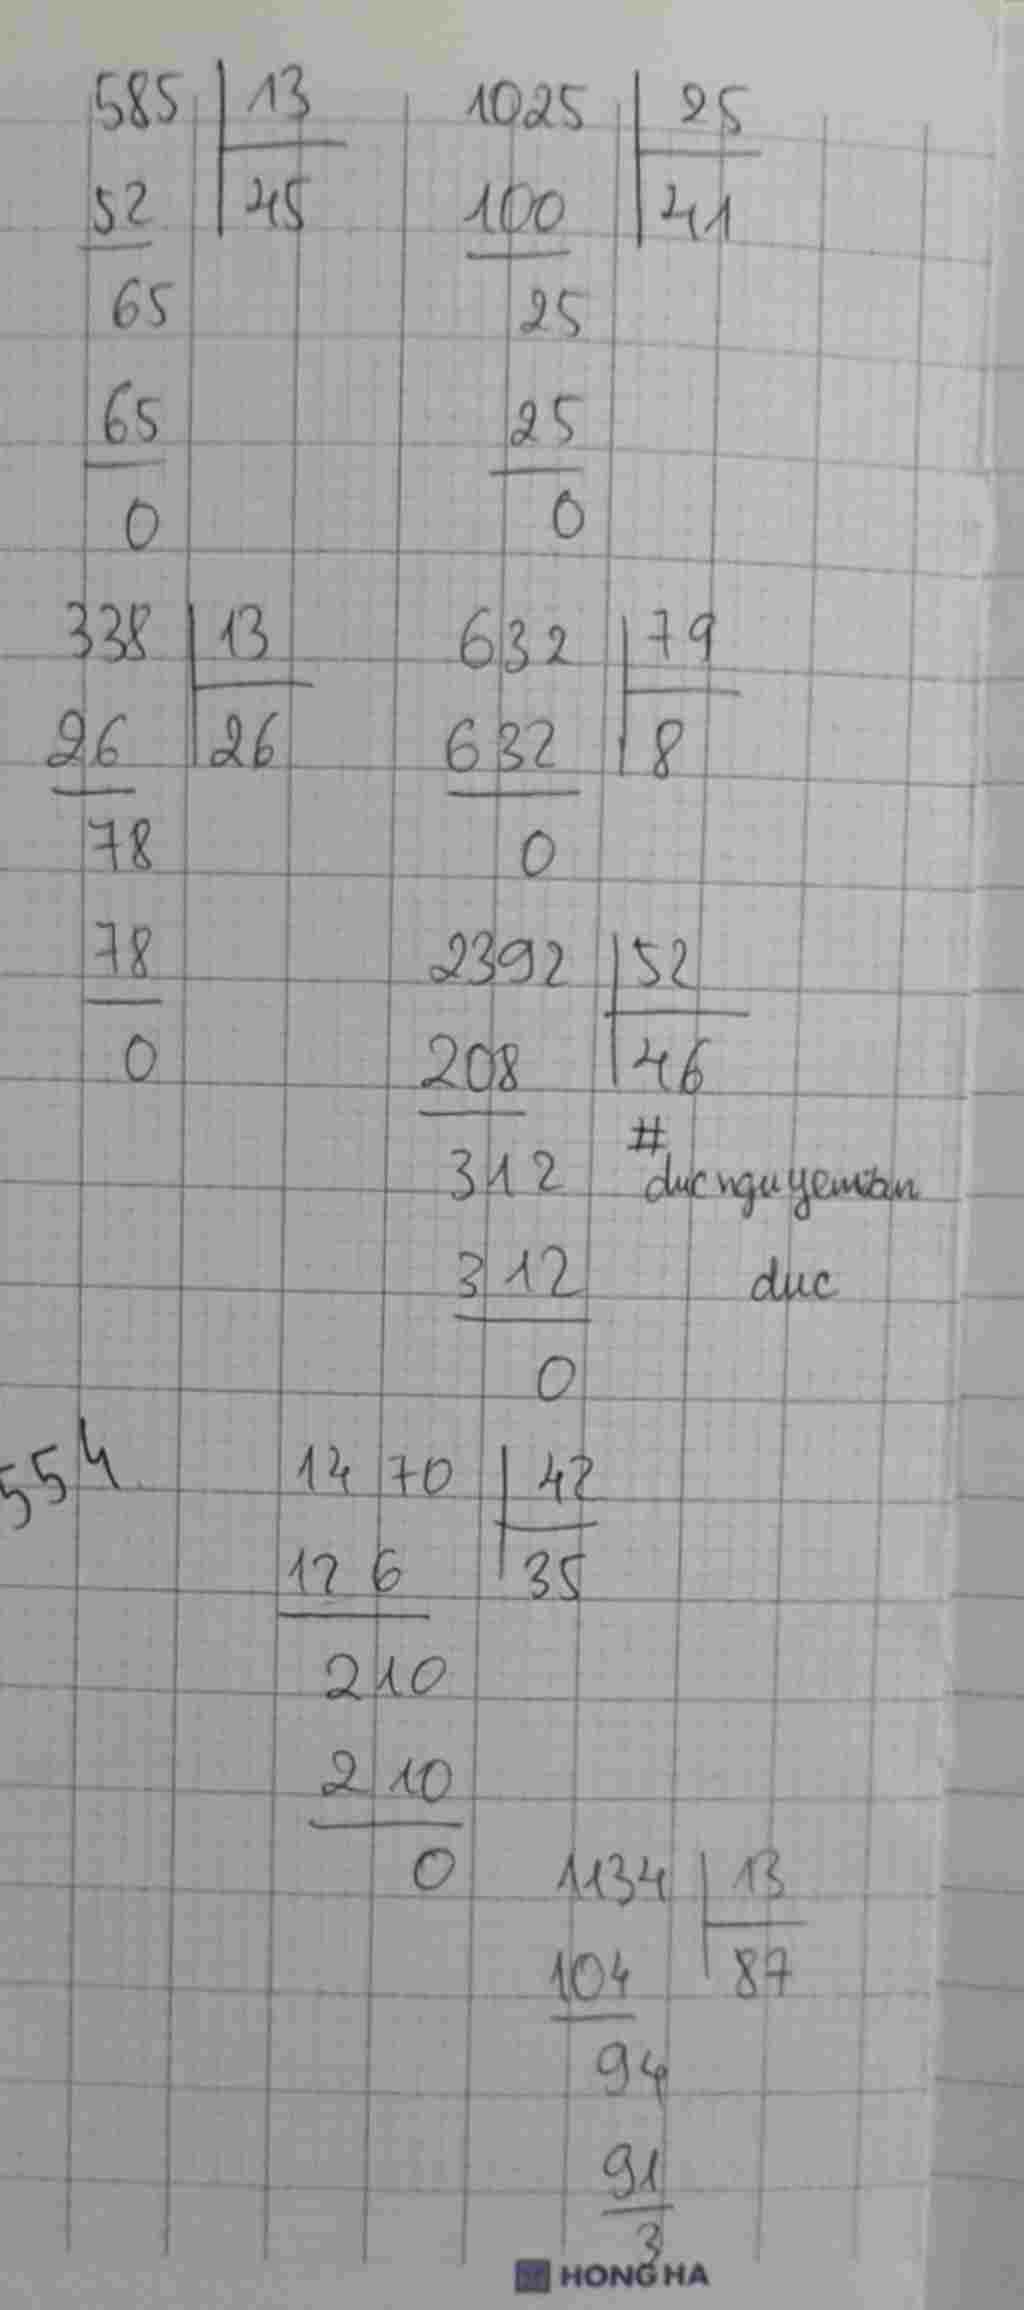 585 | 13
52 | 45
65
65
0
1025 | 25
100 | 41
25
25
0
338 | 13
26 | 26
78
78
0
632 | 79
632 | 8
0
2392 | 52
208 | 46
312
312
0
#
duc
554
1470 | 42
126 | 35
210
210
0
1134 | 13
104 | 87
94
91
3
HONG HA